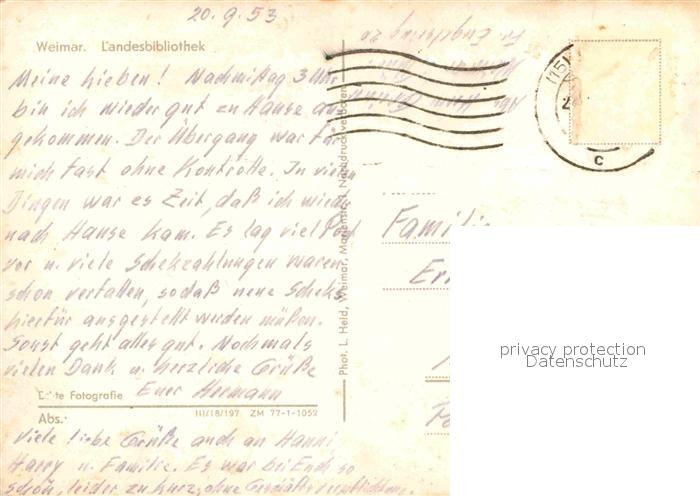 20.9.53
Weimar. Landesbibliothek
Meine Lieben! Nachmittag 3 Uhr
bin ich wieder gut zu Hause an-
gekommen. Der Übergang war für
mich fast ohne Kontrolle. In vielen
Dingen war es Zeit, daß ich wieder
nach Hause kam. Es lag viel Post
vor u. viele Scheckzahlungen waren
schon verfallen, sodaß neue Scheks
hierfür ausgestellt werden müßen.
Sonst geht alles gut. Nochmals
vielen Dank u. herzliche Grüße
Euer Hermann
Echte Fotografie
III/18/197 ZM 77-1-1052
Abs.:
Viele liebe Grüße auch an Hanni
Harry u. Familie. Es war bei Euch so
schön, leider zu kurz, ohne
Phot. L. Held, Weimar, Marienstr. 1 Nachdruck verboten
(15)
C
Familie
privacy protection
Datenschutz